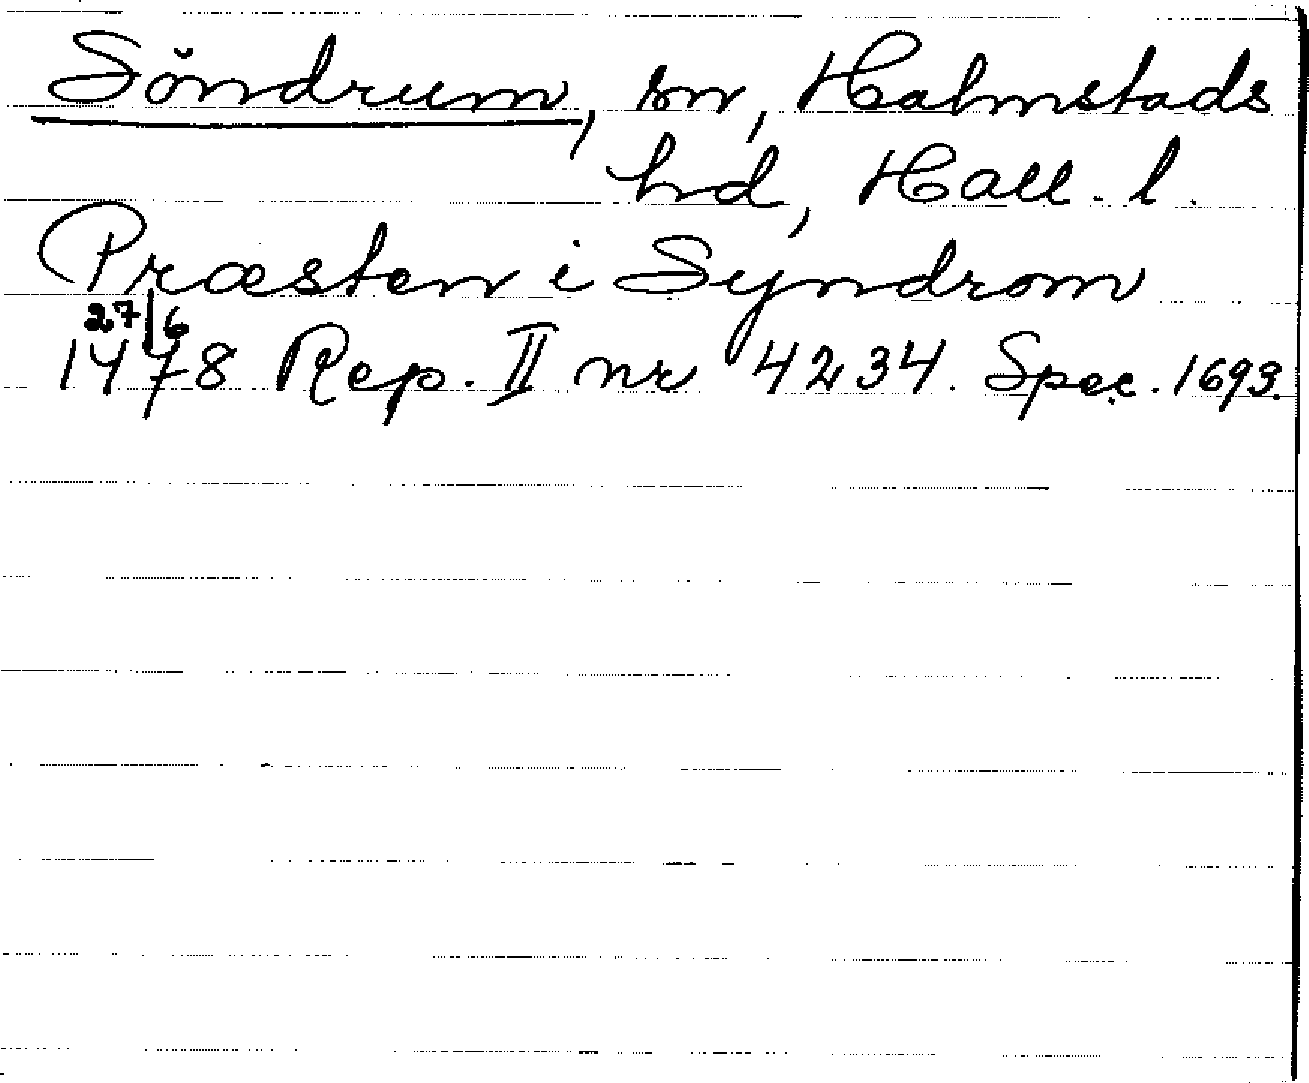 Söndrum, sn, Halmstads
hd, Hall. l.
Præsten i Syndrom
27/6
1478 Rep. II nr 4234. Spec. 1693.